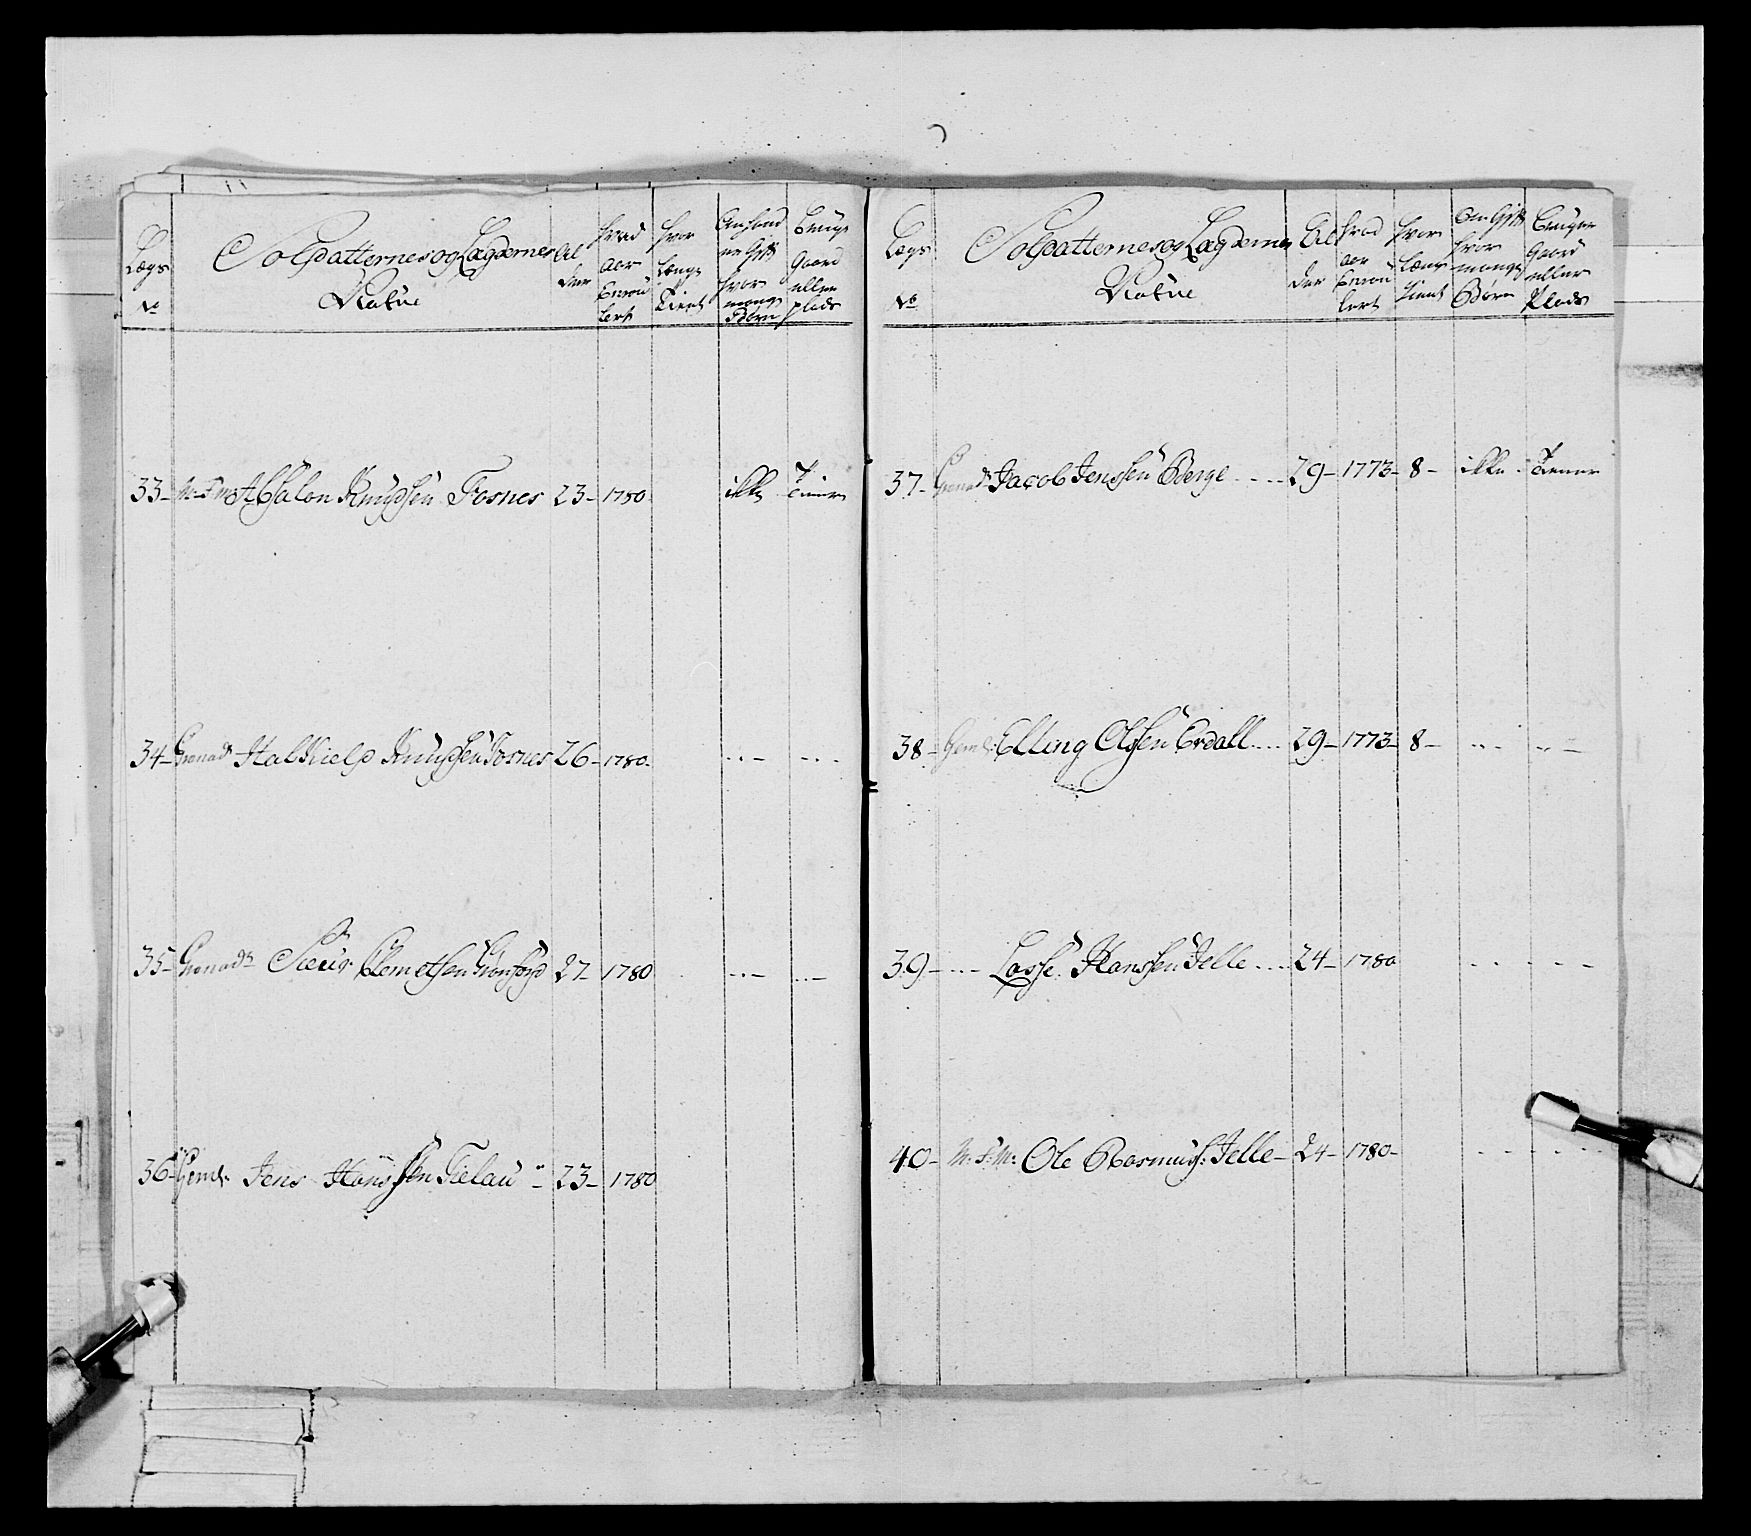 Lægs No | Soldatternes og Lægdernes Natue | Alder | hvad aar Enroulert | hvor længe Tient | om hand er Gift hvor mange Børn | Bruger Gaard eller plads
33- M. F. M. Absalon Knudsen Fosnes 23- 1780. ikke Tiener
34- Grenad: Halkield Knudsen Fosnes 26- 1780.
35- Grenad: Siur Clemetsen 27- 1780
36- Geml: Jens Hanssen Tielau 23- 1780
Lægs No | Soldatternes og Lægdernes Natue | Alder | hvad aar Enroulert | hvor længe tient | om Gift hvor mange Børn | Bruger Gaard eller Plads
37- Grenad: Jacob Jenssen Berge .... 29- 1773- 8- ikke - Tiener
38- Geml: Elling Olssen Erdall .... 29- 1773- 8-
39- Lasse Hanssen Jelle .... 24- 1780
40- M. F. M. Ole Rasmus: Jelle- 24- 1780-